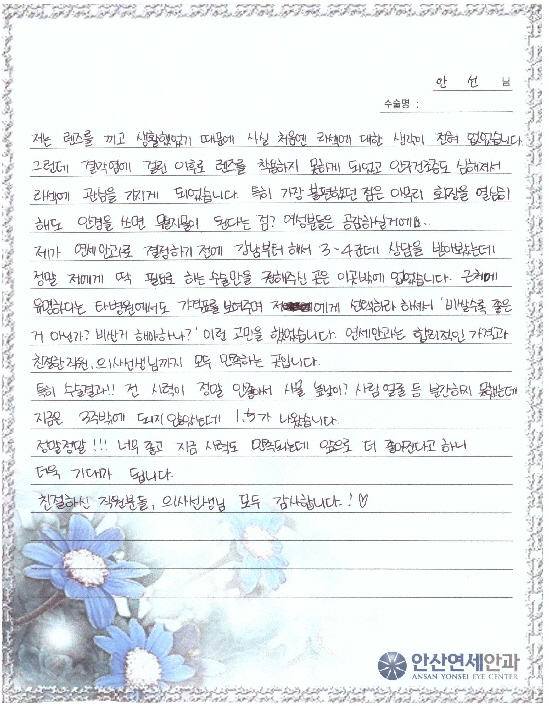 안 선 님
수술명 :
저는 렌즈를 끼고 생활했었기 때문에 사실 처음엔 라섹에 대한 생각이 전혀 없었습니다.
그런데 결막염에 걸린 이후로 렌즈를 착용하지 못하게 되었고 안구건조증도 심해져서
라섹에 관심을 가지게 되었습니다. 특히 가장 불편했던 점은 아무리 화장을 열심히
해도 안경을 쓰면 된다는 점? 여성분들은 공감하실거에요..
제가 연세안과로 결정하기 전에 강남부터 해서 3~4군데 상담을 받아보았는데
정말 저에게 딱 필요로 하는 수술만을 권해주신 곳은 이곳밖에 없었습니다. 근처에
유명하다는 타병원에서도 가격표를 보여주며 저에게 선택하라 하셔서 '비쌀수록 좋은
거 아닌가? 비싼거 해야하나?' 이런 고민을 했었습니다. 연세안과는 합리적인 가격과
친절한 직원, 의사선생님까지 모두 만족하는 곳입니다.
특히 수술결과!! 전 시력이 정말 안좋아서 사물 높낮이? 사람 얼굴 등 못했는데
지금은 3주밖에 되지 않았는데 1.5가 나왔습니다.
정말정말!!! 너무 좋고 지금 시력도 만족되는데 앞으로 더 좋아진다고 하니
더욱 기대가 됩니다.
친절하신 직원분들, 의사선생님 모두 감사합니다.! ♡
안산연세안과
ANSAN YONSEI EYE CENTER